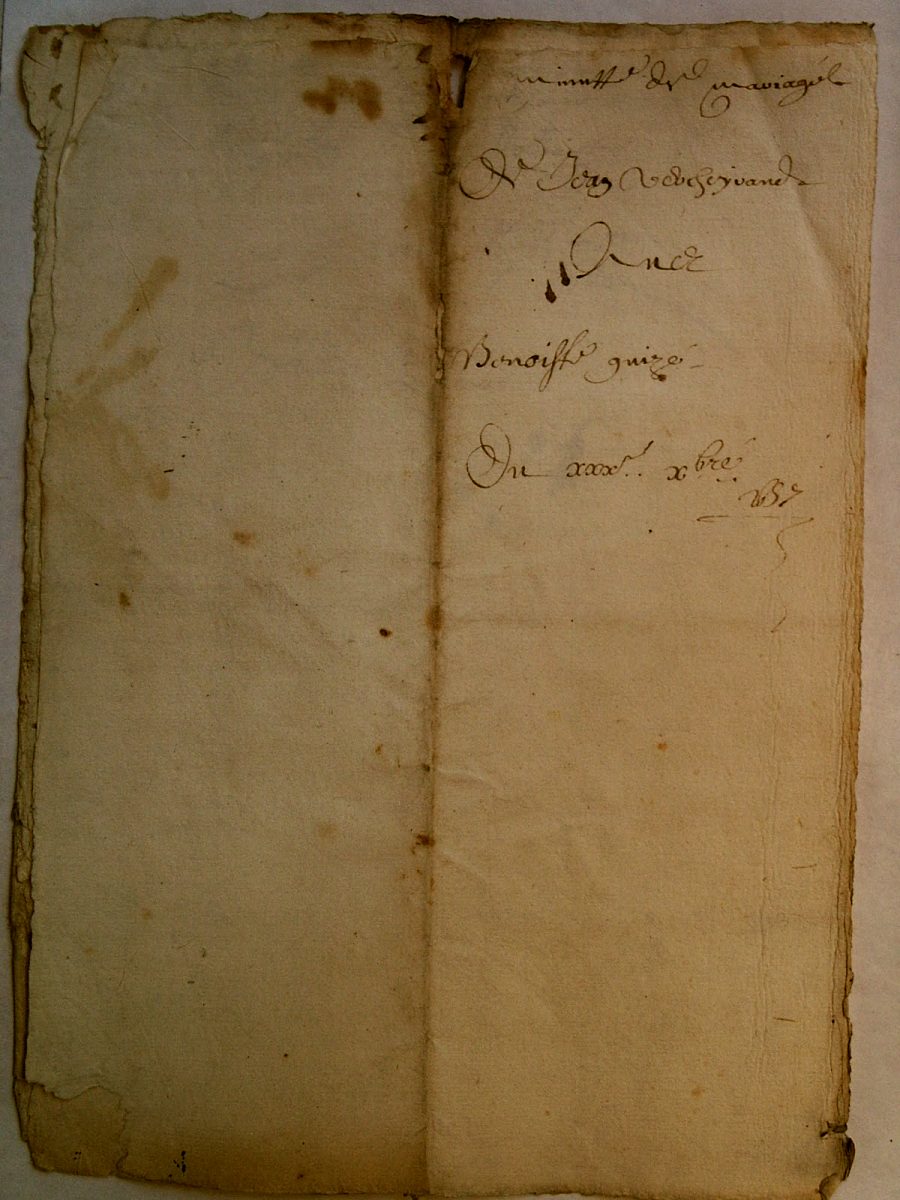 minutte de mariage
De Jean Vercheyrand
Avec
Benoiste guize
Du xxxe. xbre.